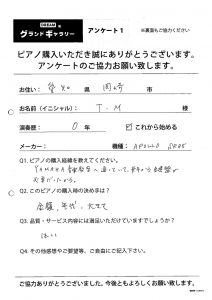 DREAM
グランドギャラリー
アンケート1
※裏面もご協力ください
ピアノ購入いただき誠にありがとうございます。
アンケートのご協力お願い致します。
お住い： 愛知 県 岡崎 市
お名前（イニシャル）： T.M 様
演奏歴： 0 年 ☑これから始める
メーカー： 機種： APOLLO
Q1. ピアノの購入経緯を教えてください。
YAMAHA
Q2. このピアノの購入時の決め手は？
金額、年代、大きさ
Q3. 品質・サービス内容には満足いただけていますでしょうか？
はい
Q4. その他感想やご要望等、ご自由にご記入下さい。
ご協力ありがとうございました。今後ともよろしくお願い致します。